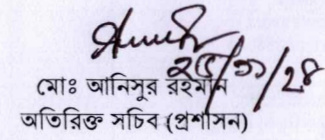 ২৫/১১/২৪
মোঃ আনিসুর রহমান
অতিরিক্ত সচিব (প্রশাসন)